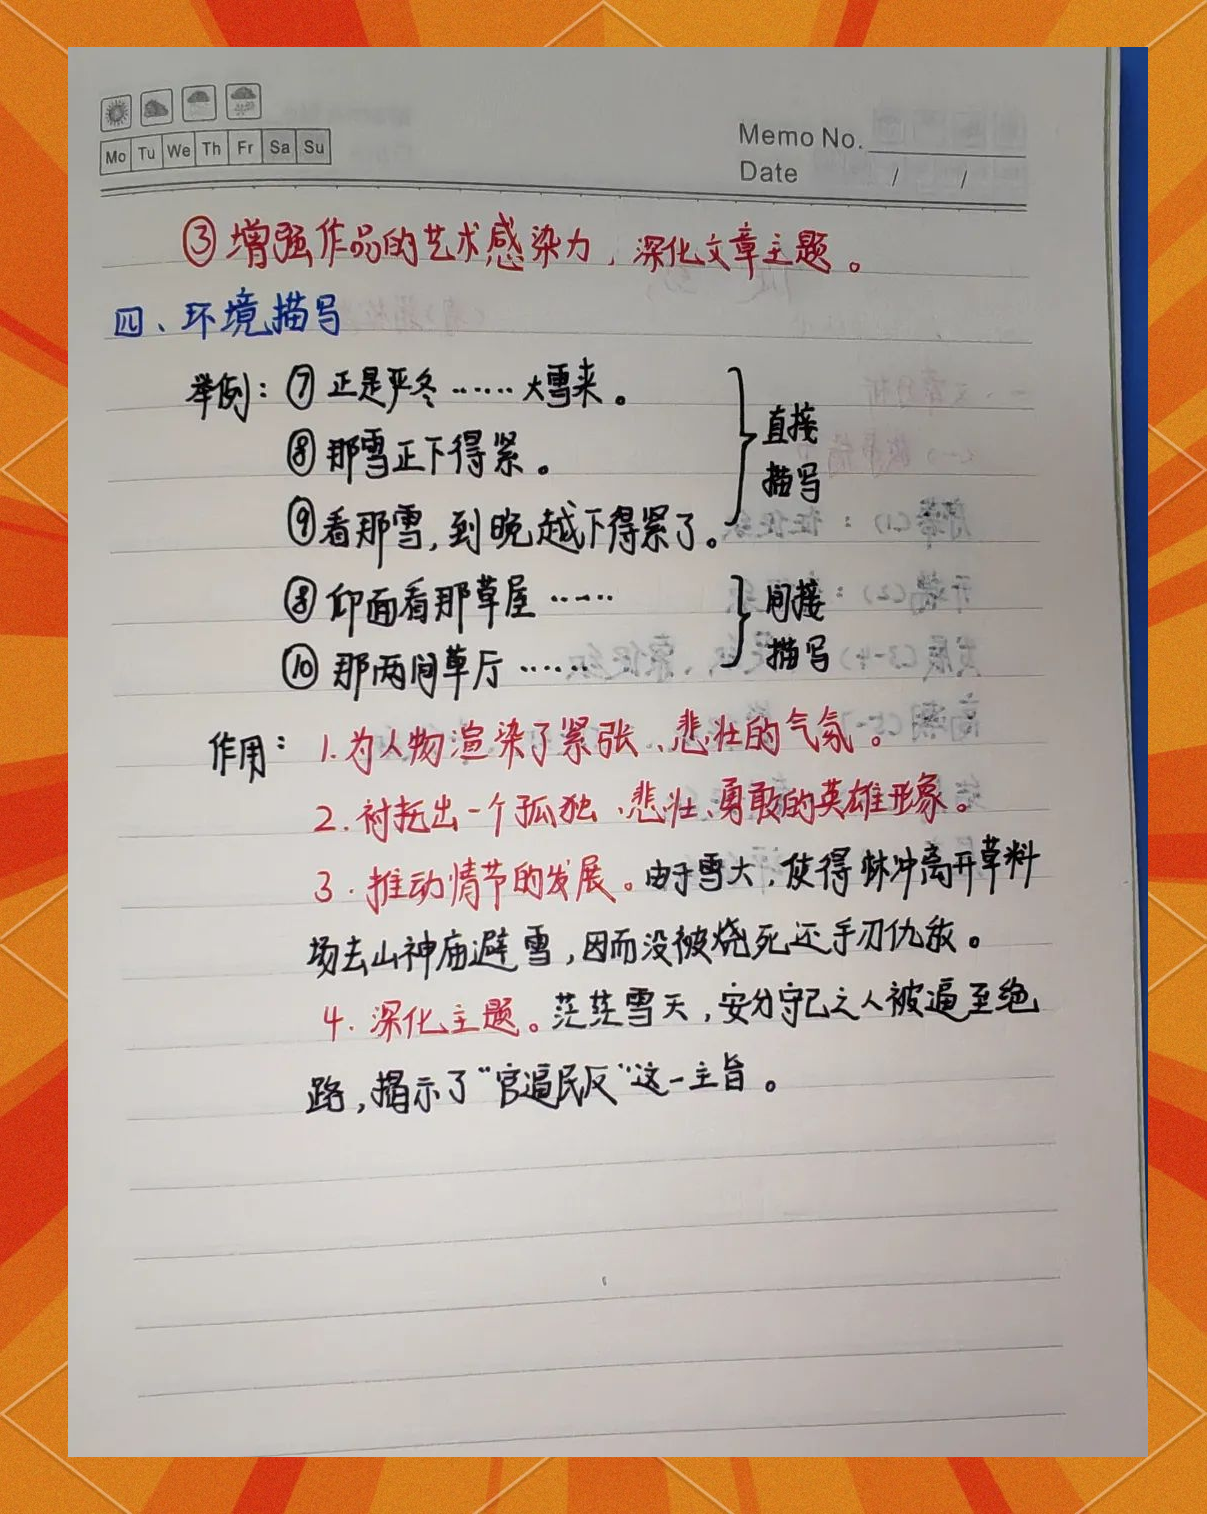 Mo Tu We Th Fr Sa Su
Memo No.
Date / /
③增强作品的艺术感染力，深化文章主题。
四、环境描写
举例：⑦正是严冬……大雪来。
⑧那雪正下得紧。
⑨看那雪，到晚越下得紧了。
直接
描写
⑧仰面看那草屋……
⑩那两间草厅……
间接
描写
作用：1.为人物渲染了紧张、悲壮的气氛。
2.衬托出一个孤独、悲壮、勇敢的英雄形象。
3.推动情节的发展。由于雪大，使得林冲离开草料
场去山神庙避雪，因而没被烧死还手刃仇敌。
4.深化主题。茫茫雪天，安分守己之人被逼至绝
路，揭示了“官逼民反”这一主旨。